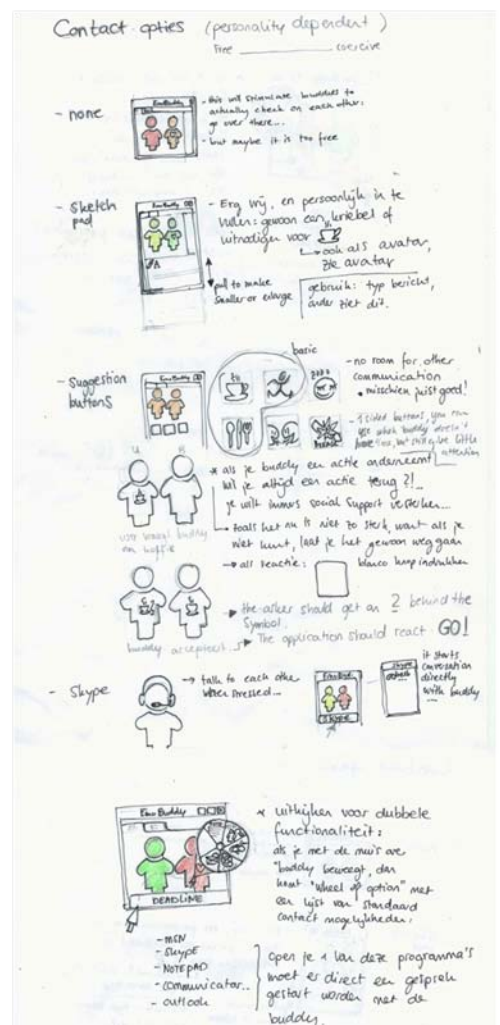 Contact opties (personality dependent)
free coercive
- none
EmoBuddy
- this will stimulate buddies to
actually check on each other:
go over there...
- but maybe it is too free
- Sketch
pad
EmoBuddy
- Erg vrij, en persoonlijk in te
vullen: gewoon een kriebel of
uitnodigen voor
→ ook als avatar,
zie avatar
pull to make
smaller or enlarge
gebruik: typ bericht,
ander ziet dit.
- Suggestion
buttons
EmoBuddy
basic
- no room for other
communication
• misschien juist goed!
- 1 sided buttons, you can
use when buddy doesn't
have, but still give little
attention
U B
* als je buddy een actie onderneemt
wil je altijd een actie terug?!
je wilt immers social support versterken...
→ zoals het nu is niet zo sterk, want als je
niet kunt, laat je het gewoon weg gaan
user vraagt buddy
om koffie
→ als reactie: blanco knop indrukken
→ the asker should get an ? behind the
symbol.
buddy accepteert
→ The application should react GO!
- Skype
→ talk to each other
when stressed...
EmoBuddy
SKYPE
Skype
it starts
conversation
directly
with buddy
Emo Buddy
DEADLINE
* uitkijken voor dubbele
functionaliteit:
als je met de muis over
"buddy beweegt, dan
komt "wheel of option" met
een lijst van standaard
contact mogelijkheden:
- MSN
- SKYPE
- NOTEPAD
- communicator..
- outlook
Open je 1 van deze programma's
moet er direct een gesprek
gestart worden met de
buddy.